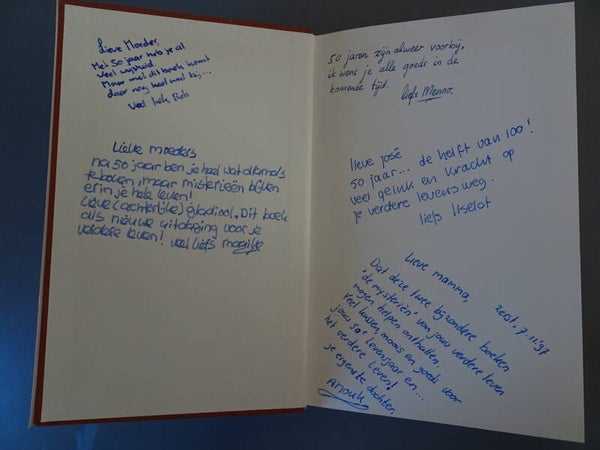 Lieve Moeder,
Met 50 jaar heb je al
veel wijsheid.
Maar met dit boek komt
daar nog heel wat bij....
Veel liefs Rob
Lieve moeders
na 50 jaar ben je heel wat
te boven, maar misterieën blijven
er in je hele leven!
Lieve (achterlijke) gladiool. Dit boek
als nieuwe uitdaging voor je
verdere leven! veel liefs
50 jaren zijn alweer voorbij,
ik wens je alle goeds in de
komende tijd.
liefs Menno.
lieve josé
50 jaar... de helft van 100!
veel geluk en kracht op
je verdere levensweg.
liefs liselot
Lieve mamma, zeist, 7.11.'97
Dat deze twee bijzondere boeken
'de mysteriën' van jouw verdere leven
mogen helpen onthullen.
Veel kussen, moois en goeds voor
jouw 50e levensjaar en...
het verdere leven!
je eigenste dochter,
Anouk